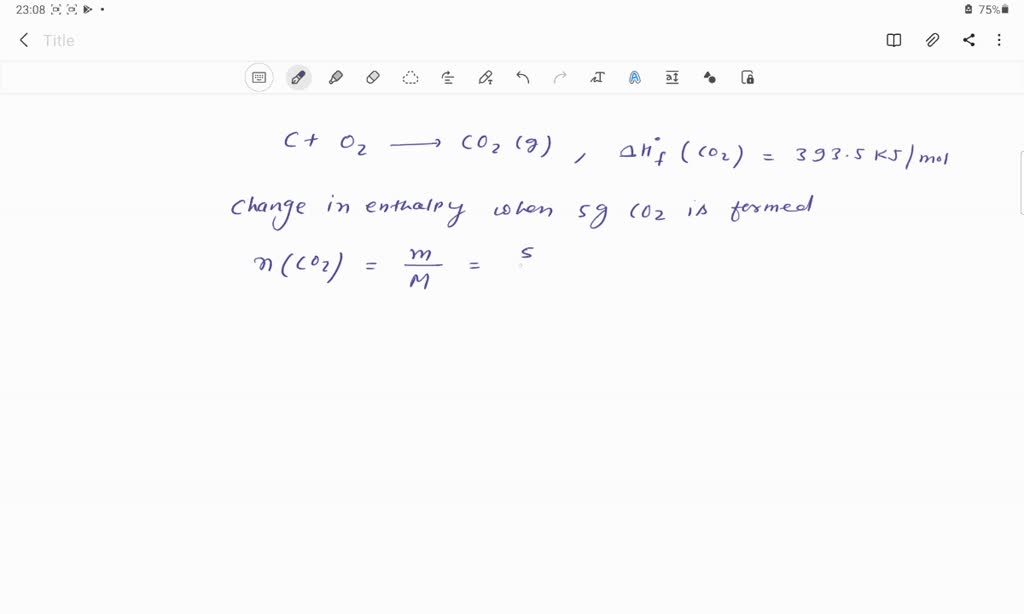 23:08 75%
Title
C + O₂ ⟶ CO₂ (g) , ΔH°f (CO₂) = 393.5 KJ/mol
Change in enthalpy when 5g CO₂ is formed
n(CO₂) = m/M = 5